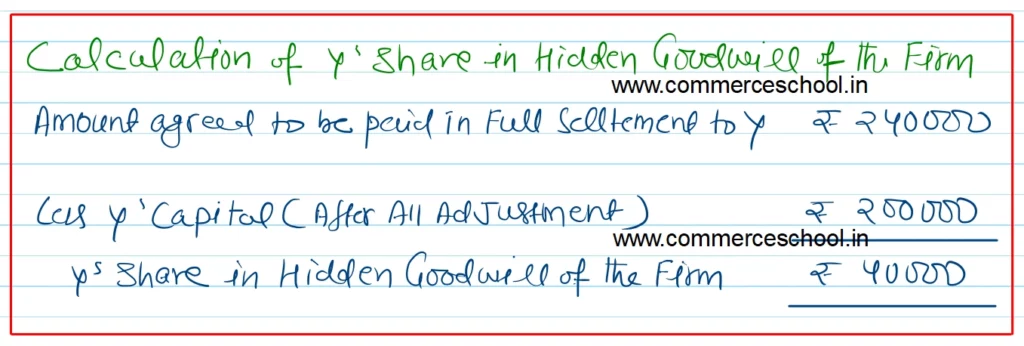 Calculation of Y's Share in Hidden Goodwill of the Firm
www.commerceschool.in
Amount agreed to be paid in Full Selltement to Y ₹ 240000
Less Y's Capital (After All AdJustment) ₹ 200000
www.commerceschool.in
Y's Share in Hidden Goodwill of the Firm ₹ 40000